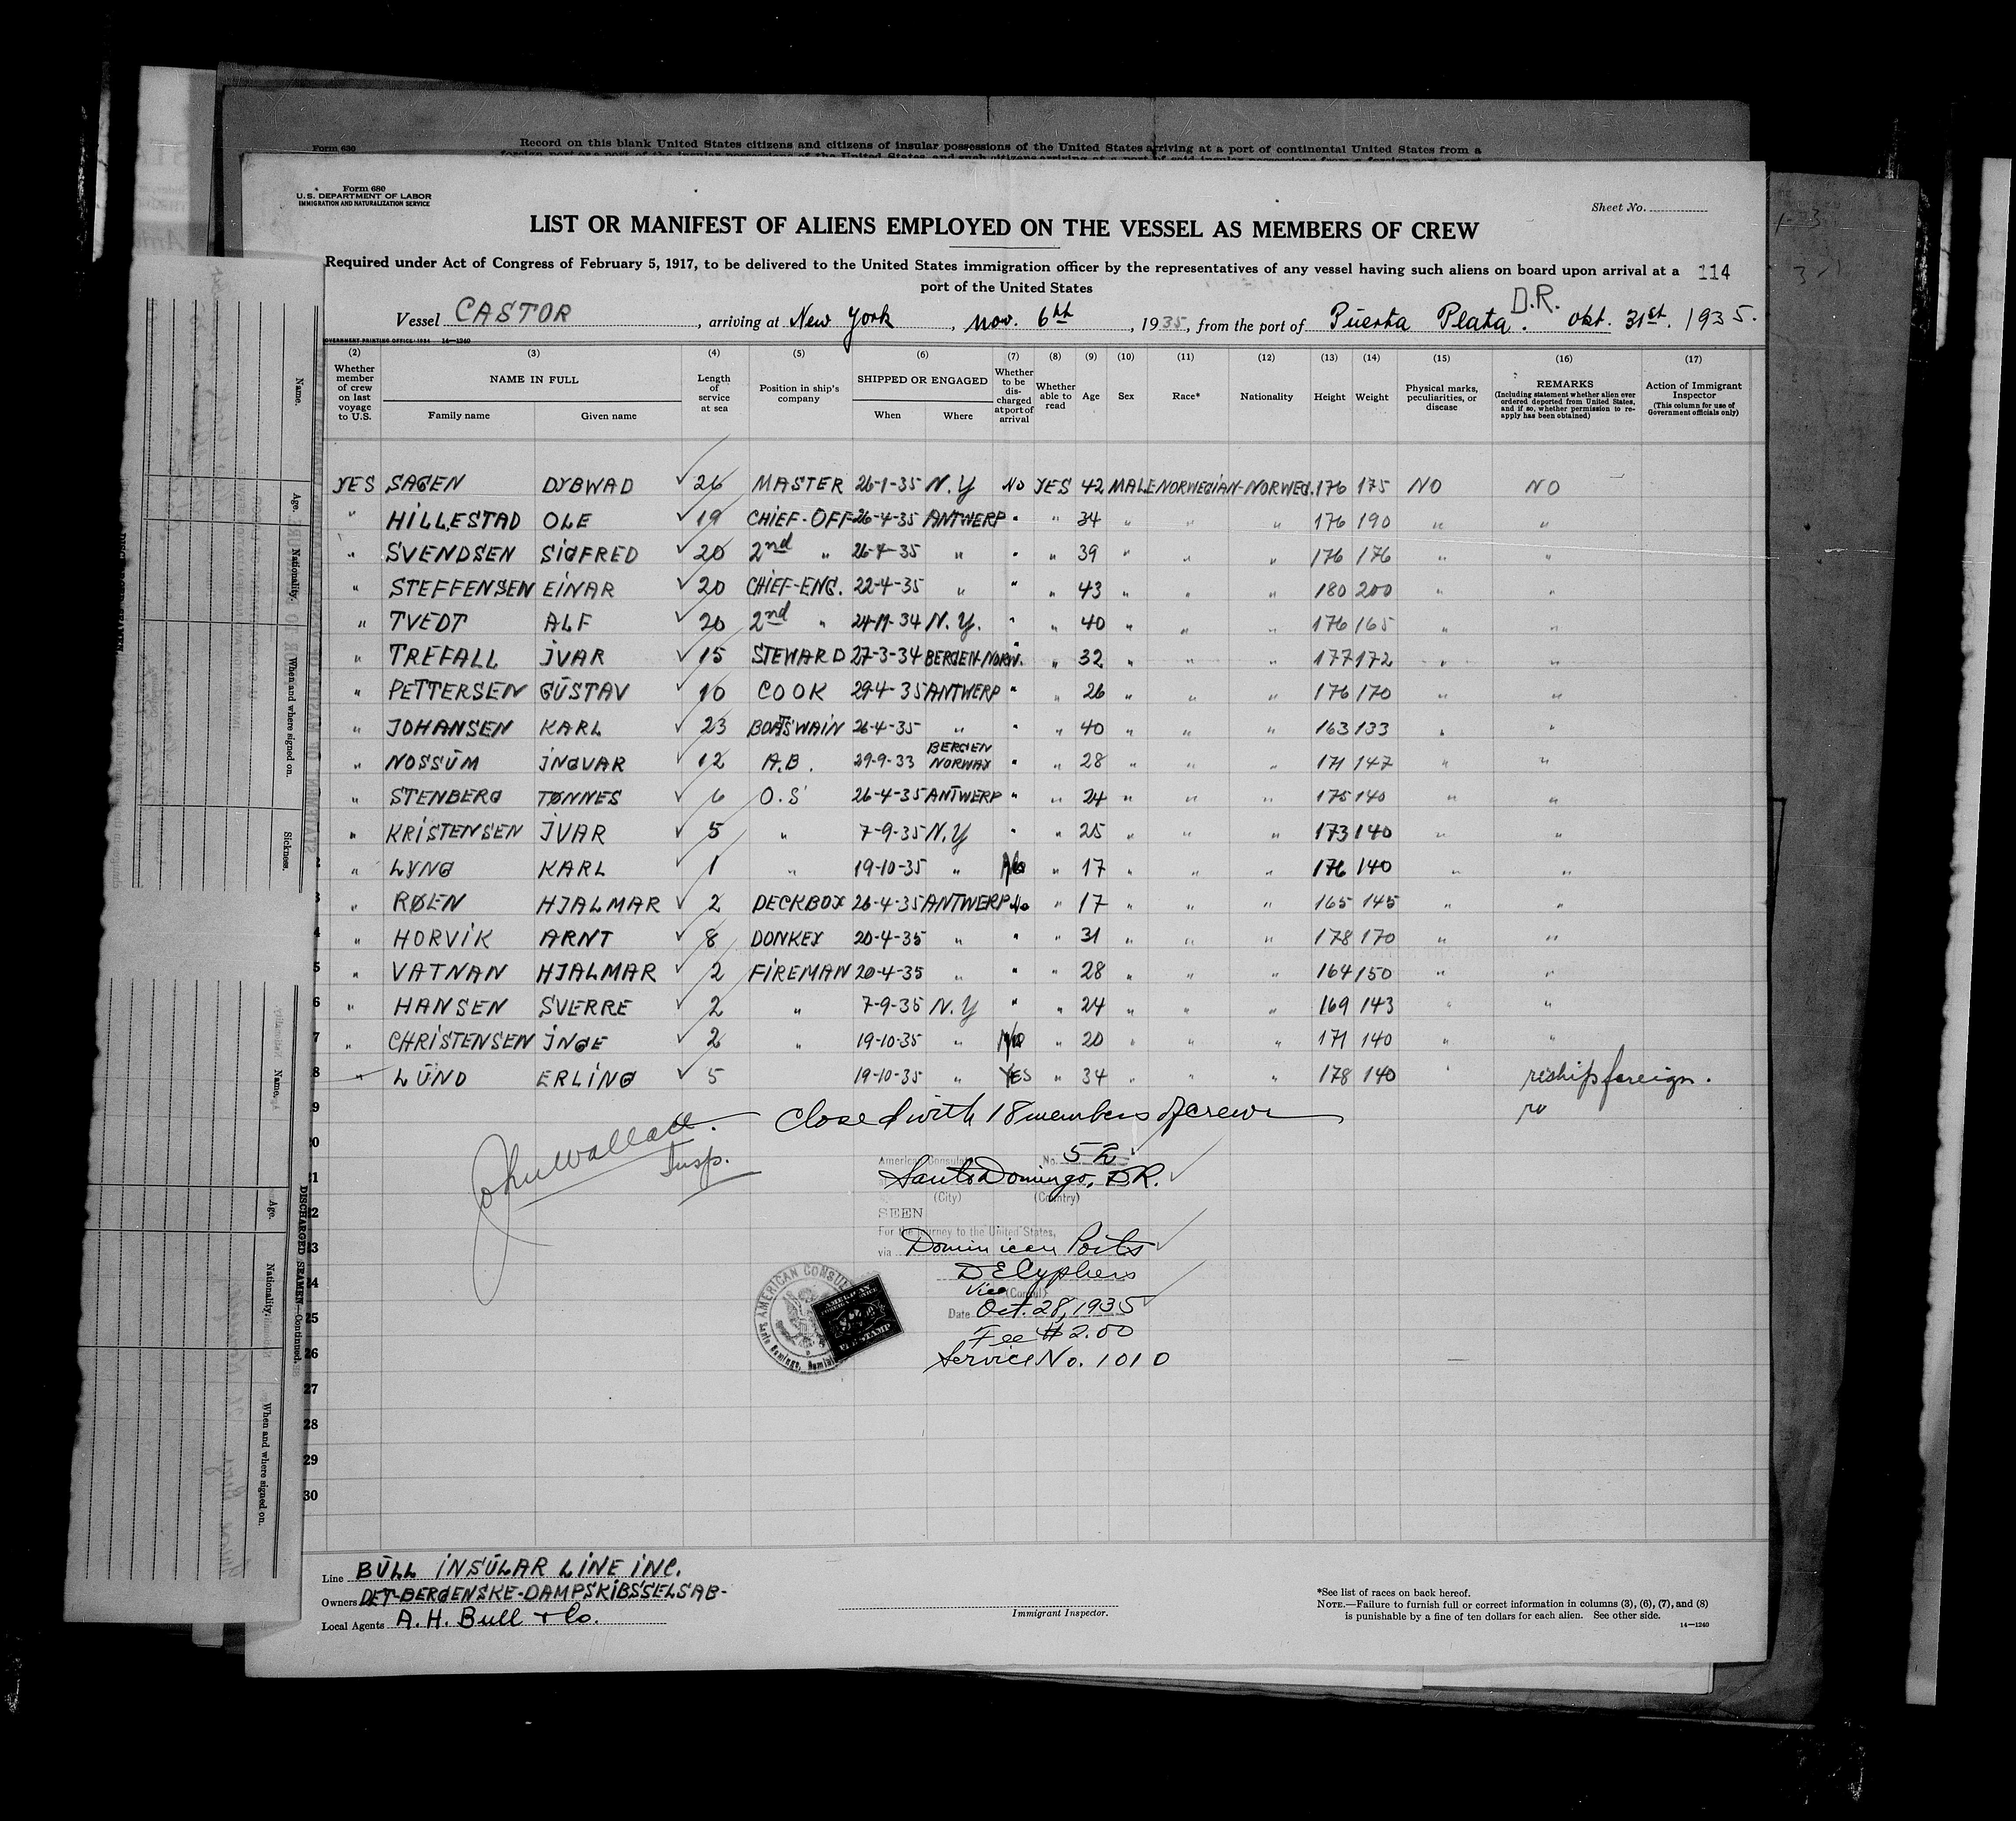 Form 630
Record on this blank United States citizens and citizens of insular possessions of the United States arriving at a port of continental United States from a
Form 680
U.S. DEPARTMENT OF LABOR
IMMIGRATION AND NATURALIZATION SERVICE
Sheet No.
LIST OR MANIFEST OF ALIENS EMPLOYED ON THE VESSEL AS MEMBERS OF CREW
Required under Act of Congress of February 5, 1917, to be delivered to the United States immigration officer by the representatives of any vessel having such aliens on board upon arrival at a 114
port of the United States
Vessel CASTOR, arriving at New York, nov. 6th, 1935, from the port of Püerta Plata. D.R. okt. 31st. 1935.
GOVERNMENT PRINTING OFFICE: 1934 14—1240
(2) (3) (4) (5) (6) (7) (8) (9) (10) (11) (12) (13) (14) (15) (16) (17)
Whether member of crew on last voyage to U.S.
NAME IN FULL
Family name Given name
Length of service at sea
Position in ship's company
SHIPPED OR ENGAGED
When Where
Whether to be discharged at port of arrival
Whether able to read
Age
Sex
Race*
Nationality
Height
Weight
Physical marks, peculiarities, or disease
REMARKS
(Including statement whether alien ever ordered deported from United States, and if so, whether permission to reapply has been obtained)
Action of Immigrant Inspector
(This column for use of Government officials only)
YES SAGEN DYBWAD ✓ 26 MASTER 26-1-35 N.Y No YES 42 MALE NORWEGIAN-NORWEG. 176 175 NO NO
" HILLESTAD OLE ✓ 19 CHIEF-OFF 26-4-35 ANTWERP " " 34 " " " 176 190 " "
" SVENDSEN SIGFRED ✓ 20 2nd " 26-4-35 " " " 39 " " " 176 176 " "
" STEFFENSEN EINAR ✓ 20 CHIEF-ENG. 22-4-35 " " " 43 " " " 180 200 " "
" TVEDT ALF ✓ 20 2nd " 24-11-34 N.Y. " " 40 " " " 176 165 " "
" TREFALL IVAR ✓ 15 STEWARD 27-3-34 BERGEN-NORW. " " 32 " " " 177 172 " "
" PETTERSEN GÜSTAV ✓ 10 COOK 29-4-35 ANTWERP " " 26 " " " 176 170 " "
" JOHANSEN KARL ✓ 23 BOATSWAIN 26-4-35 " " " 40 " " " 163 133 " "
" NOSSÜM INGVAR ✓ 12 A.B. 29-9-33 BERGEN NORWAY " " 28 " " " 171 147 " "
" STENBERG TØNNES ✓ 6 O.S 26-4-35 ANTWERP " " 24 " " " 175 140 " "
" KRISTENSEN IVAR ✓ 5 " 7-9-35 N.Y " " 25 " " " 173 140 " "
" LYNG KARL ✓ 1 " 19-10-35 " No " 17 " " " 176 140 " "
" RØEN HJALMAR ✓ 2 DECKBOY 26-4-35 ANTWERP No " 17 " " " 165 145 " "
" HORVIK ARNT ✓ 8 DONKEY 20-4-35 " " " 31 " " " 178 170 " "
" VATNAN HJALMAR ✓ 2 FIREMAN 20-4-35 " " " 28 " " " 164 150 " "
" HANSEN SVERRE ✓ 2 " 7-9-35 N.Y " " 24 " " " 169 143 " "
" CHRISTENSEN INGE ✓ 2 " 19-10-35 " No " 20 " " " 171 140 " "
" LÜND ERLING ✓ 5 19-10-35 " YES " 34 " " " 178 140 " reship foreign.
Closed with 18 members of crew
John Wallace.
Insp.
American Consulate No. 52
Santo Domingo, D.R.
(City) (Country)
SEEN
For the journey to the United States,
via Dominican Ports
D E Cyphers
Vice (Consul)
Date Oct. 28, 1935
Fee $2.00
Service No. 1010
AMERICAN CONSUL
26
27
28
29
30
Line BÜLL INSÜLAR LINE INC.
Owners DET-BERGENSKE-DAMPSKIBSSELSAB-
Local Agents A.H. Bull & Co.
Immigrant Inspector.
*See list of races on back hereof.
NOTE.—Failure to furnish full or correct information in columns (3), (6), (7), and (8)
is punishable by a fine of ten dollars for each alien. See other side.
14—1240
Name.
Age.
Nationality.
When and where signed on.
Sickness.
Name.
Age.
Nationality.
When and where signed on.
DISCHARGED SEAMEN—Continued.